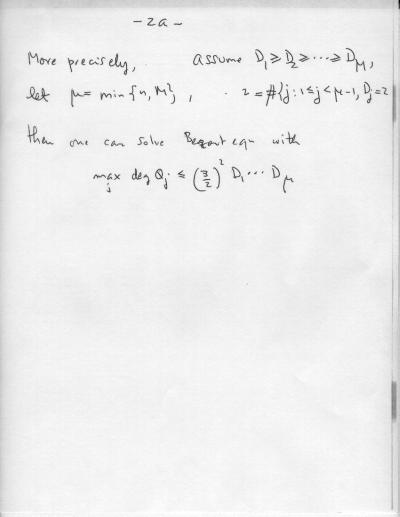 - 2a -
More precisely, assume D₁ ≥ D₂ ≥ ⋯ ≥ D_M,
let μ = min{n, M}, 2 = #{j : 1 ≤ j < μ-1, Dj = 2
then one can solve Bezout eqn with
max_j deg Qj ≤ (3/2)² D₁ ⋯ D_μ